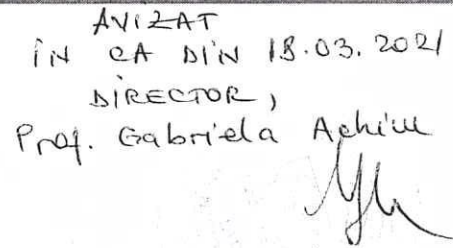 AVIZAT
ÎN CA DIN 18.03.2021
DIRECTOR,
Prof. Gabriela Achim